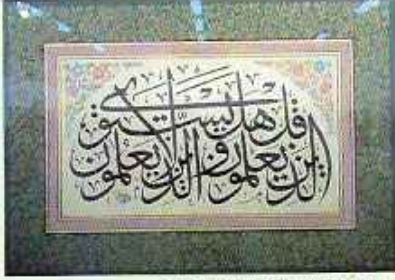 قل هل يستوى
الذين يعلمون والذين لا يعلمون